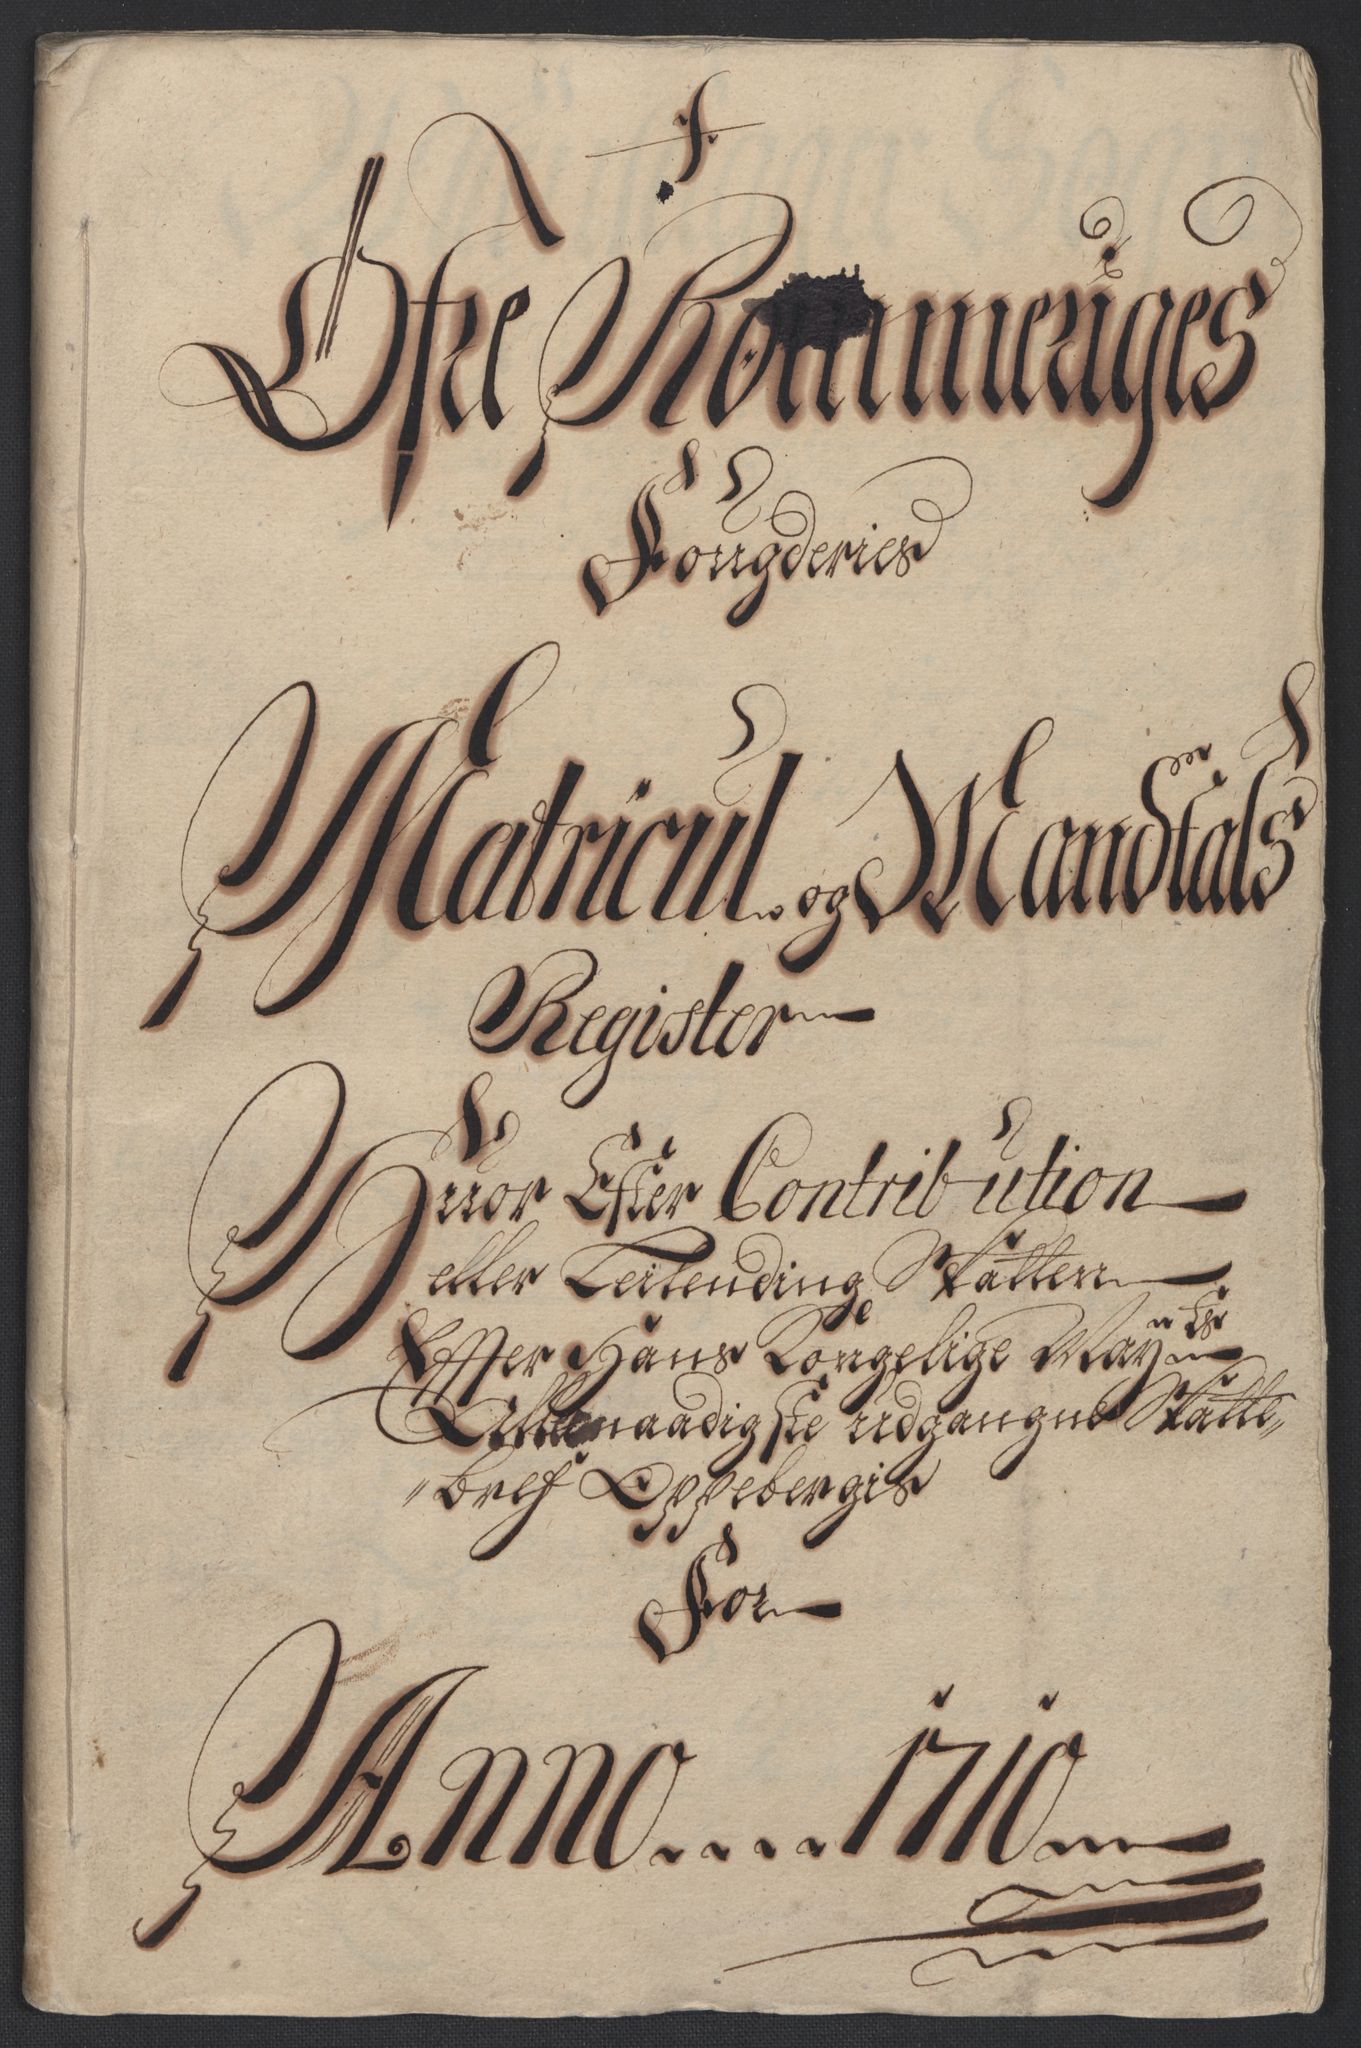 Öfre Rommeriges
Fougderies
Matricul og Mandtals
Register
Huor Efter Contribution
eller Leilending Skatten
Effter Hans Kongelige Mayts
Allernaadigste udgangne Skatte
bref Oppebergis
For
Anno....1710